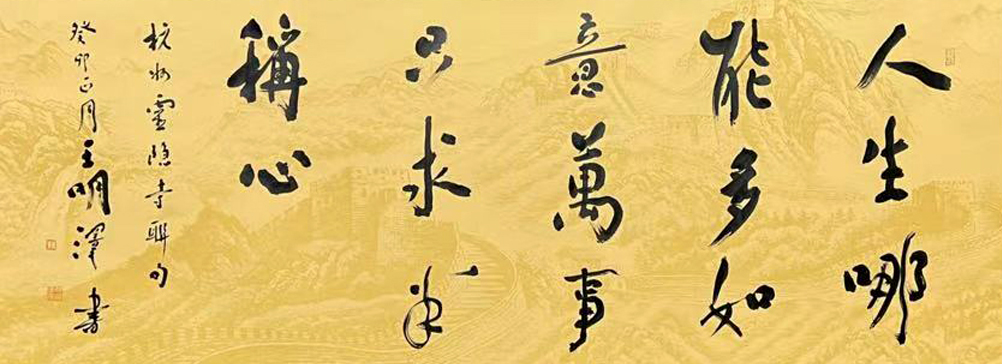 人生哪
能多如
意萬事
只求半
稱心
杭州靈隐寺聯句
癸卯正月王明澤書